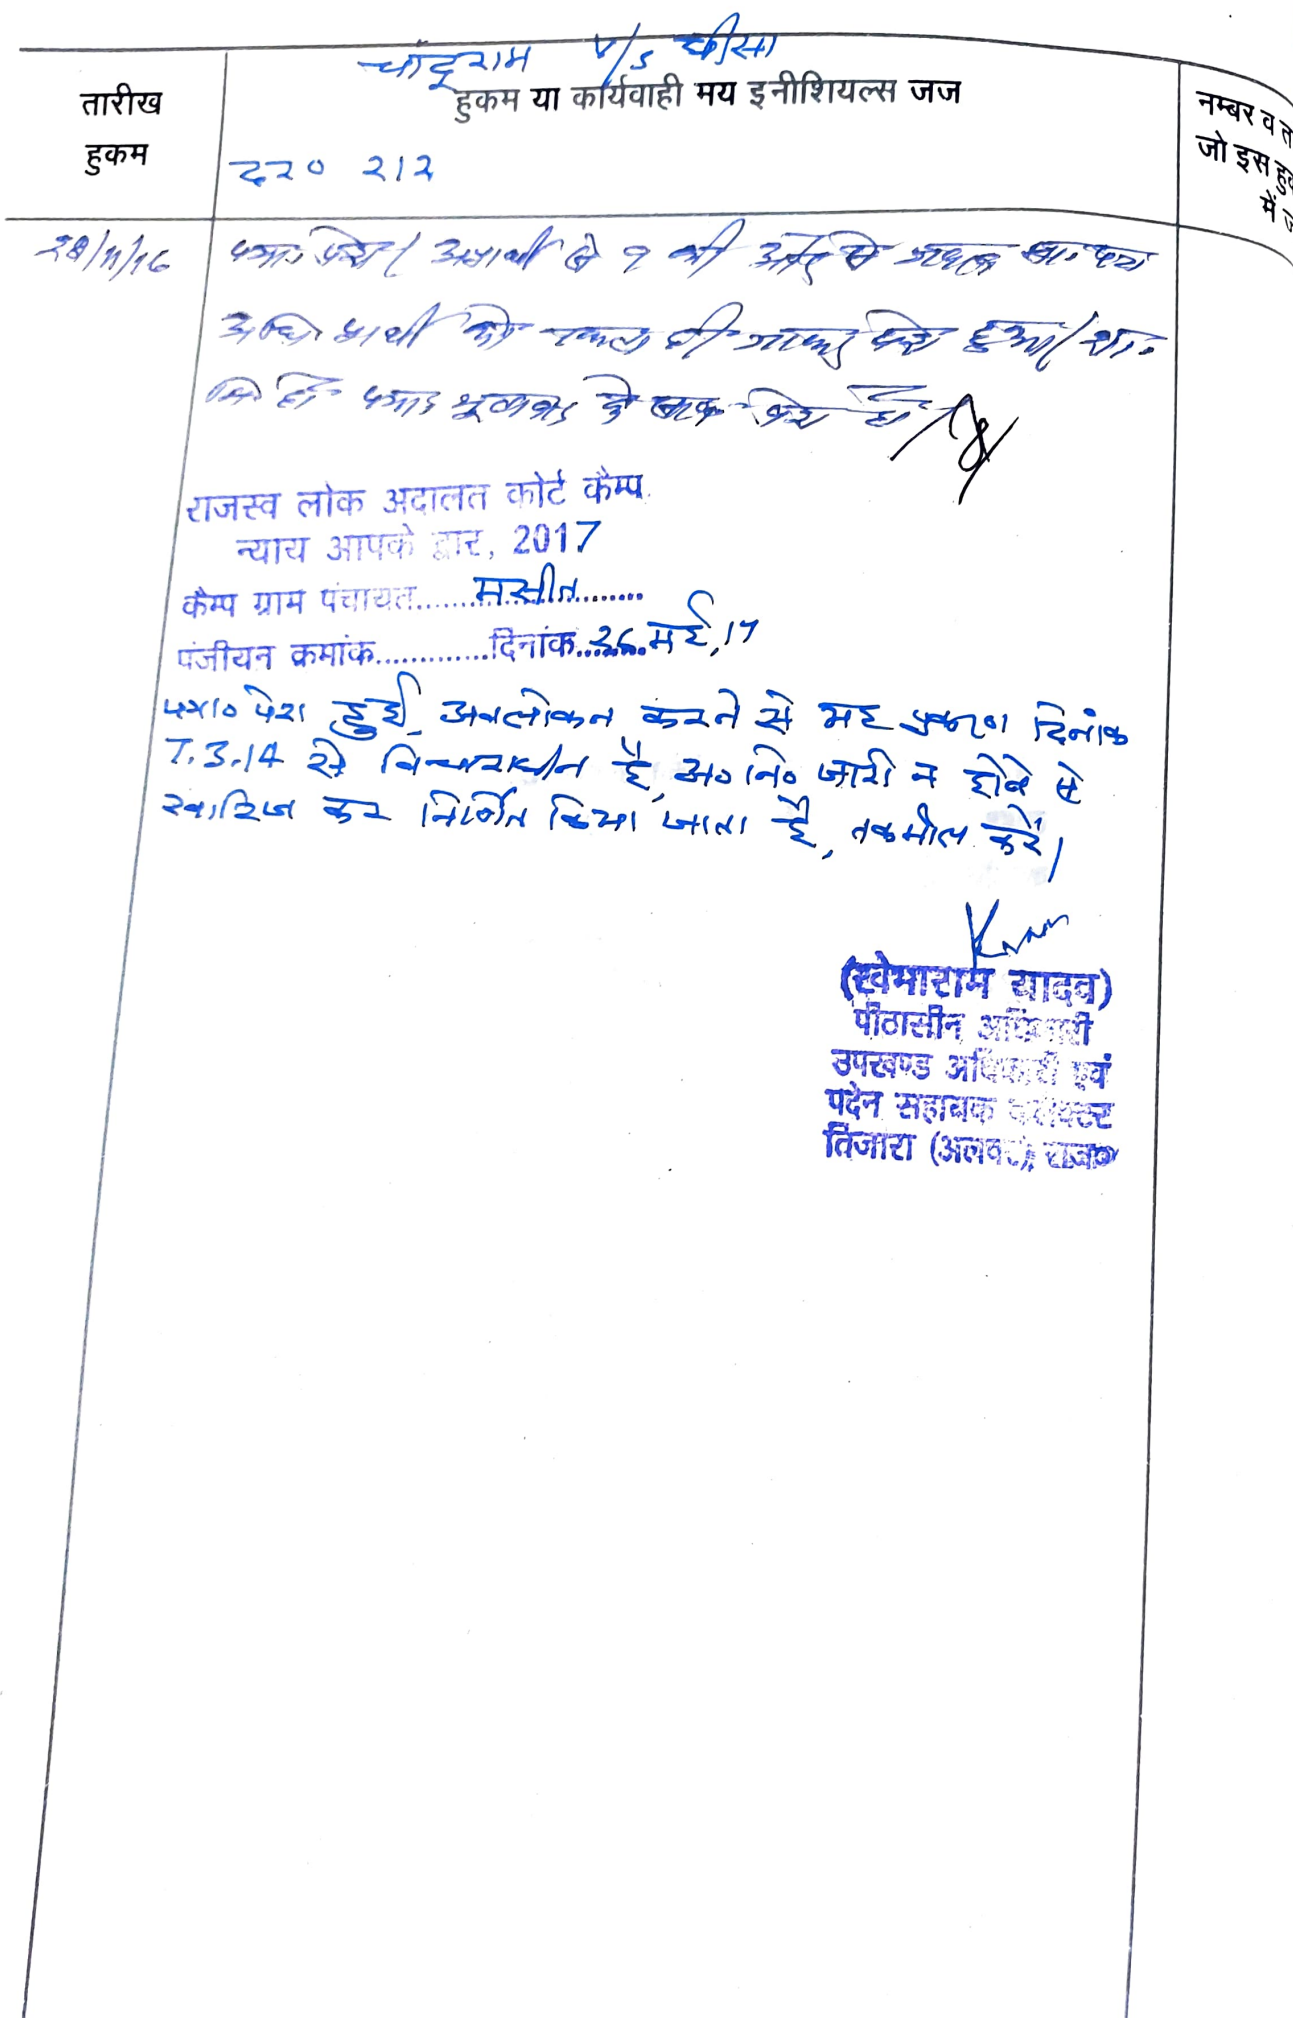 चांदूराम v/s घीसा
तारीख
हुकम
हुकम या कार्यवाही मय इनीशियल्स जज
दर० 212
नम्बर व त
जो इस हु
में ज
28/11/16 पत्रा. पेश। की ओर से
को नकल दी जाकर पेश हुआ।
पेश हो।
राजस्व लोक अदालत कोर्ट कैम्प
न्याय आपके द्वार, 2017
कैम्प ग्राम पंचायत.......मसीत.......
पंजीयन क्रमांक.............दिनांक 26 मई, 17
पत्रा० पेश हुई, अवलोकन करने से यह प्रकरण दिनांक
7.3.14 से विचाराधीन है, अ० नि० जारी न होने से
खारिज कर निर्णित किया जाता है, तकमील करें।
(खेमाराम यादव)
पीठासीन अधिकारी
उपखण्ड अधिकारी एवं
पदेन सहायक कलेक्टर
तिजारा (अलवर), राज०